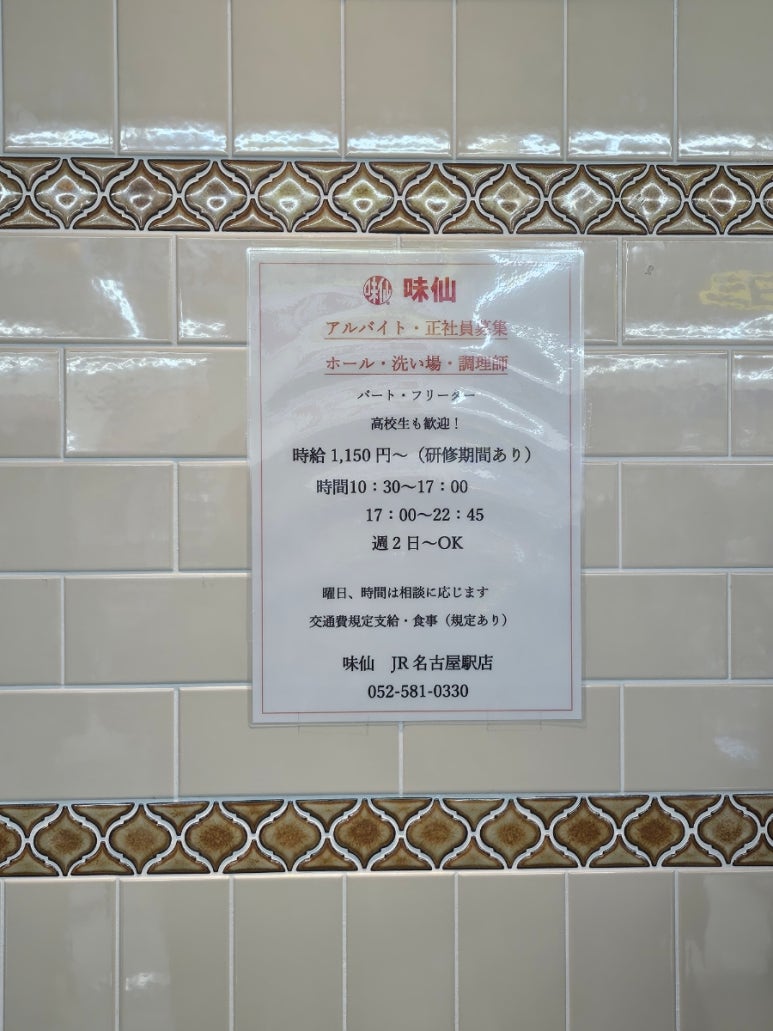 味仙 味仙
アルバイト・正社員募集
ホール・洗い場・調理師
パート・フリーター
高校生も歓迎！
時給1,150円～（研修期間あり）
時間10：30～17：00
17：00～22：45
週2日～OK
曜日、時間は相談に応じます
交通費規定支給・食事（規定あり）
味仙　JR名古屋駅店
052-581-0330